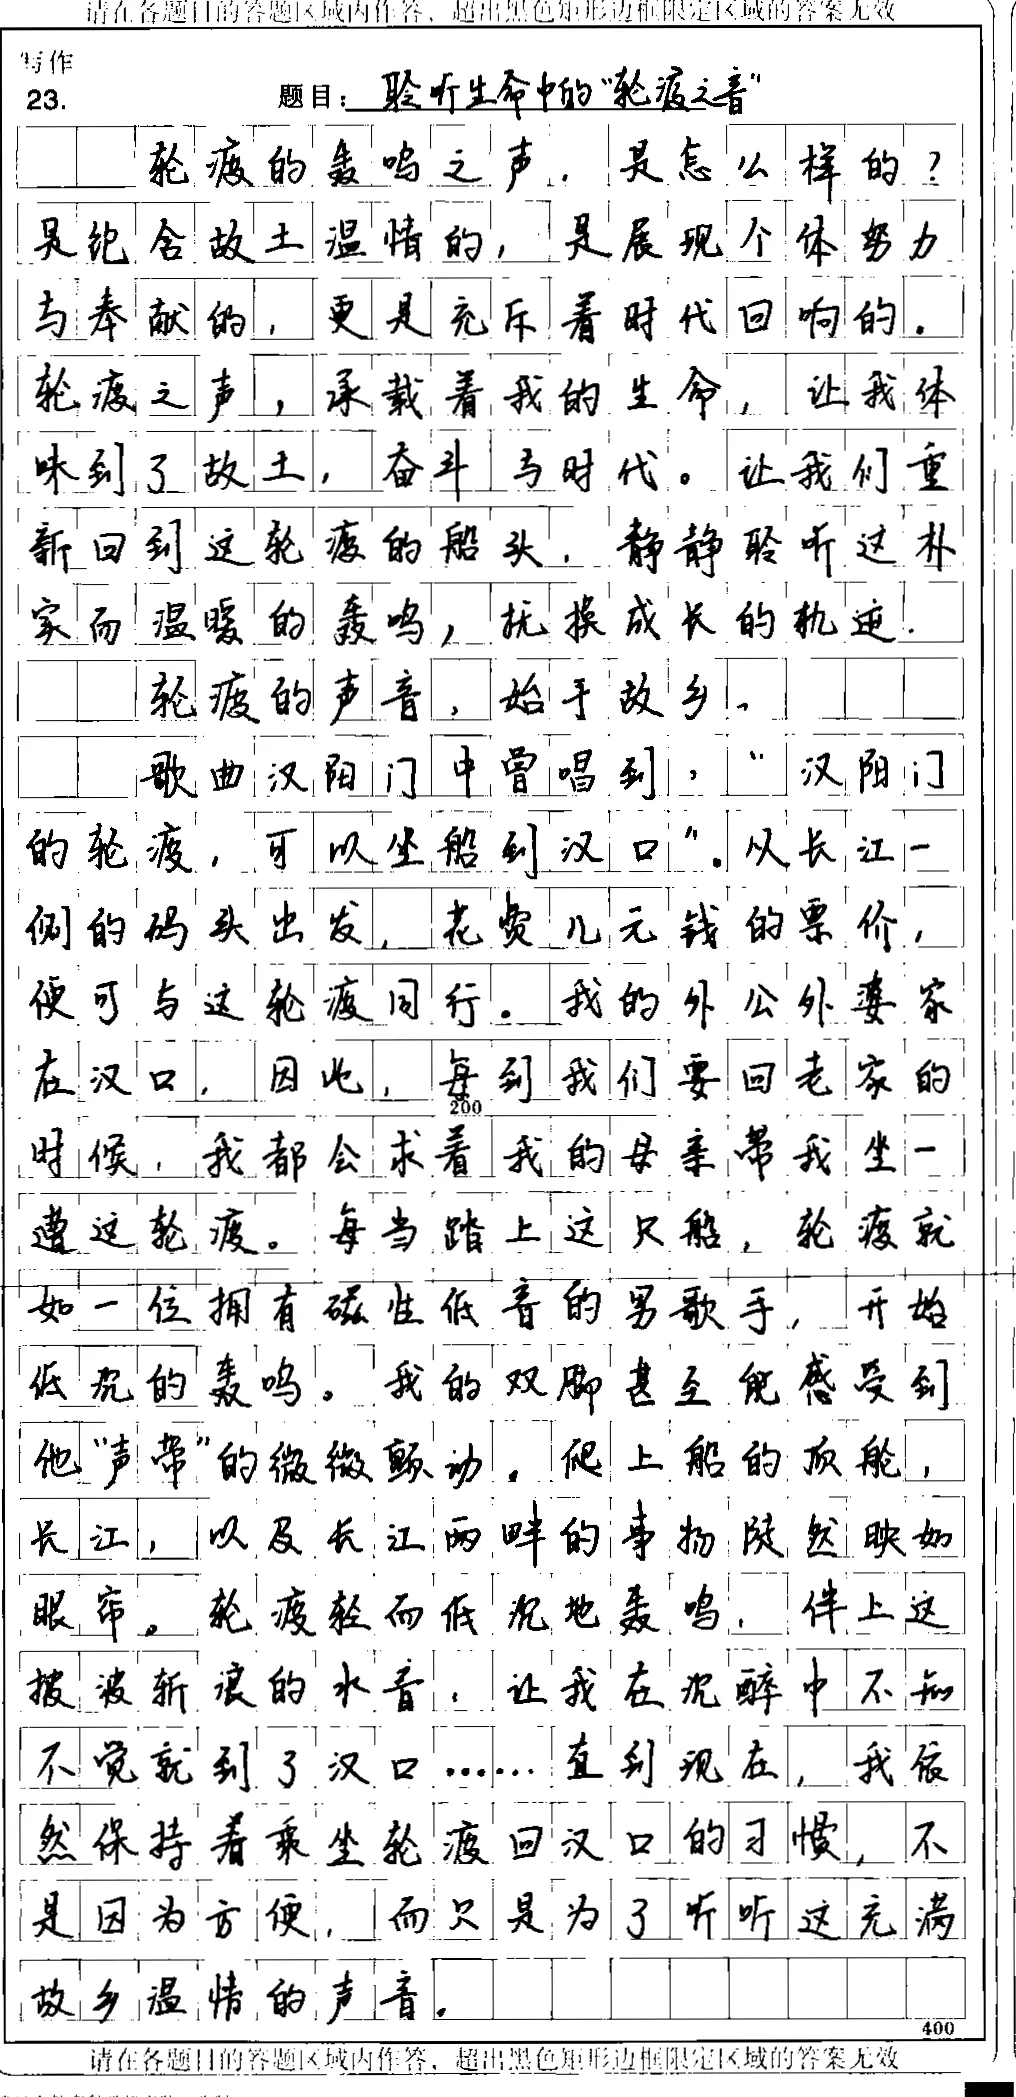 请在各题目的答题区域内作答，超出黑色矩形边框限定区域的答案无效
写作
23.
题目：聆听生命中的“轮渡之音”
轮渡的轰鸣之声，是怎么样的？
是饱含故土温情的，是展现个体努力
与奉献的，更是充斥着时代回响的。
轮渡之声，承载着我的生命，让我体
味到了故土，奋斗与时代。让我们重
新回到这轮渡的船头，静静聆听这朴
家而温暖的轰鸣，抚摸成长的轨迹.
轮渡的声音，始于故乡。
歌曲汉阳门中曾唱到，“汉阳门
的轮渡，可以坐船到汉口”。从长江一
侧的码头出发，花费几元钱的票价，
便可与这轮渡同行。我的外公外婆家
在汉口，因此，每到我们要回老家的
200
时候，我都会求着我的母亲带我坐一
遭这轮渡。每当踏上这只船，轮渡就
如一位拥有磁性低音的男歌手，开始
低沉的轰鸣。我的双脚甚至能感受到
他“声带”的微微颤动。爬上船的顶舱，
长江，以及长江两畔的事物陡然映如
眼帘。轮渡轻而低沉地轰鸣，伴上这
披波斩浪的水音，让我在沉醉中不知
不觉就到了汉口……直到现在，我依
然保持着乘坐轮渡回汉口的习惯，不
是因为方便，而只是为了听听这充满
故乡温情的声音。
400
请在各题目的答题区域内作答，超出黑色矩形边框限定区域的答案无效